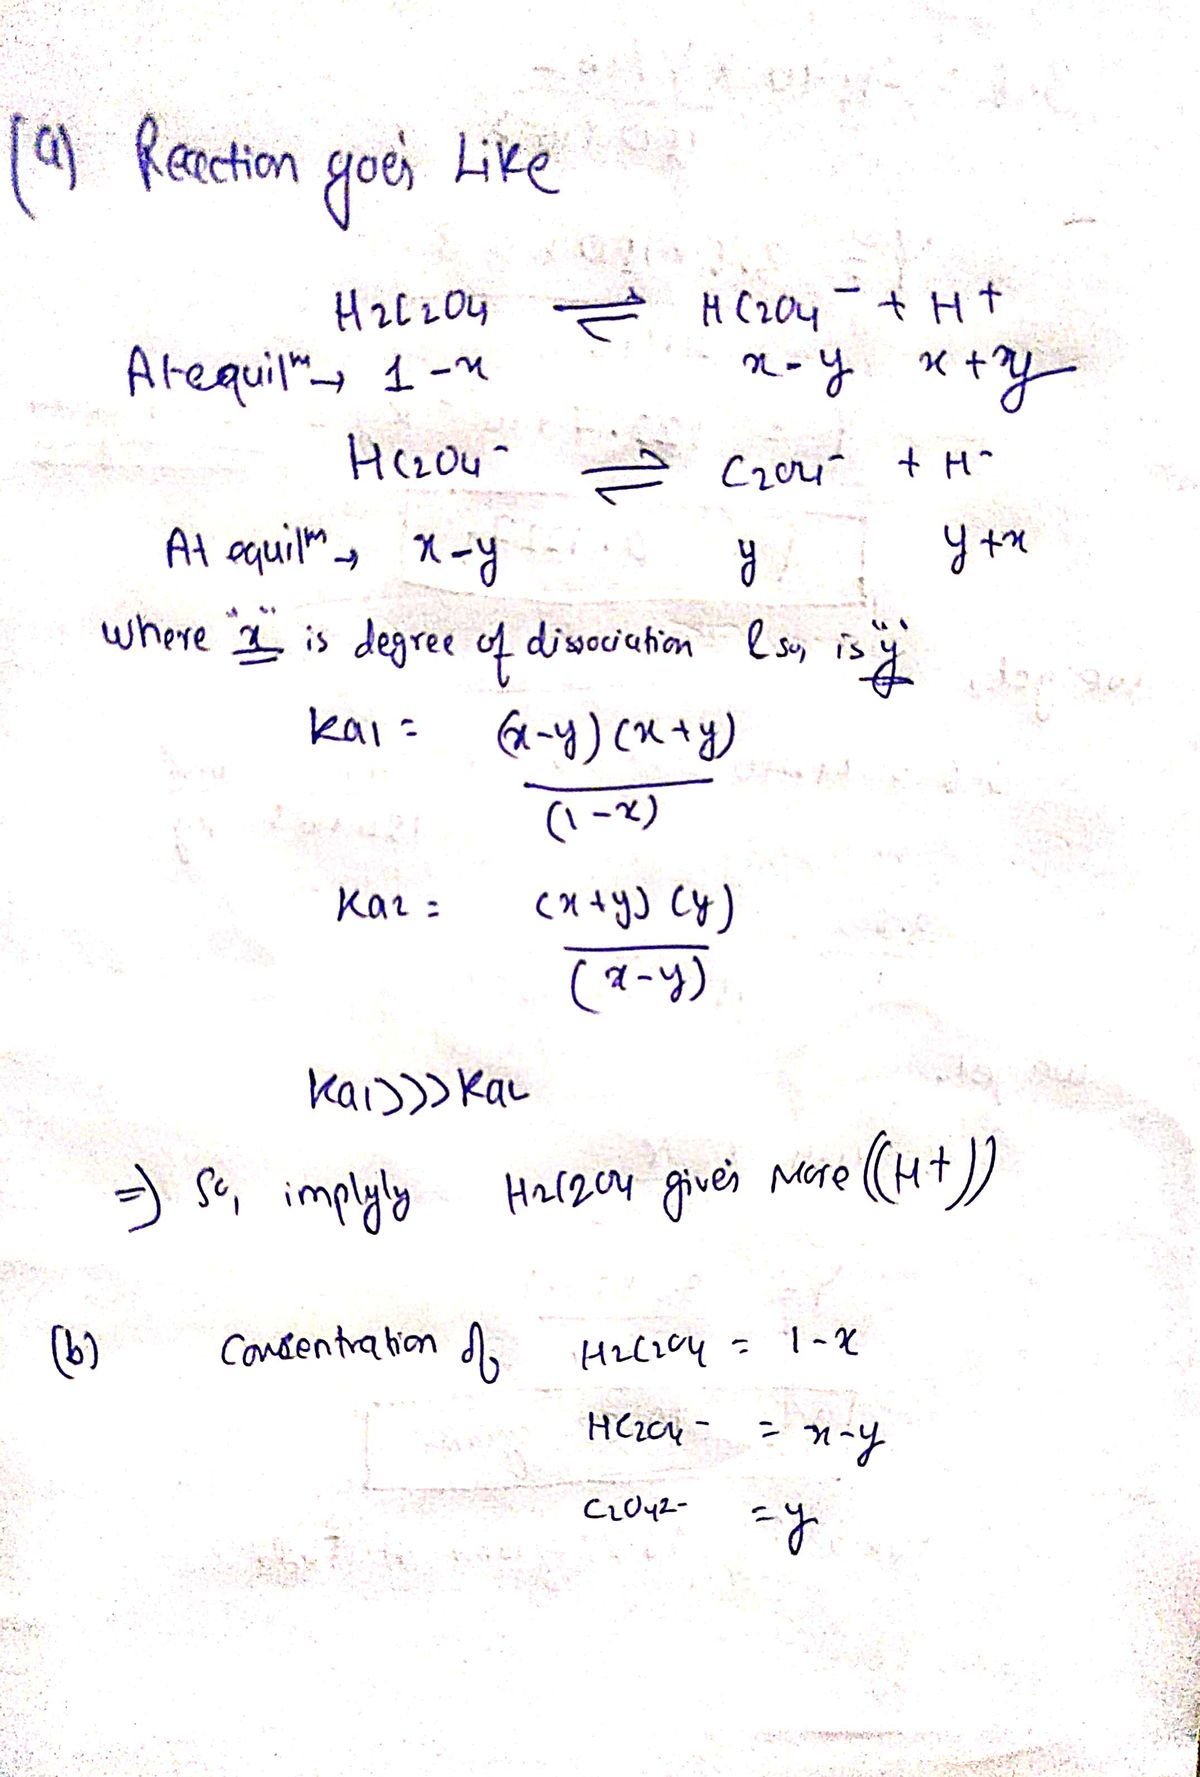 (a) Reaction goes Like
H2C2O4 ⇌ HC2O4⁻ + H+
At equilᵐ → 1-x x-y x+y
HC2O4⁻ ⇌ C2O4⁻ + H⁻
At equilᵐ → x-y y y+x
where "x" is degree of dissociation & so, is "y"
Ka1 = (x-y)(x+y)
(1-x)
Ka2 = (x+y)(y)
(x-y)
Ka1>>>Ka2
⇒ So, implyly H2C2O4 gives More ((H+))
(b) Concentration of H2C2O4 = 1-x
HC2O4⁻ = x-y
C2O42- = y